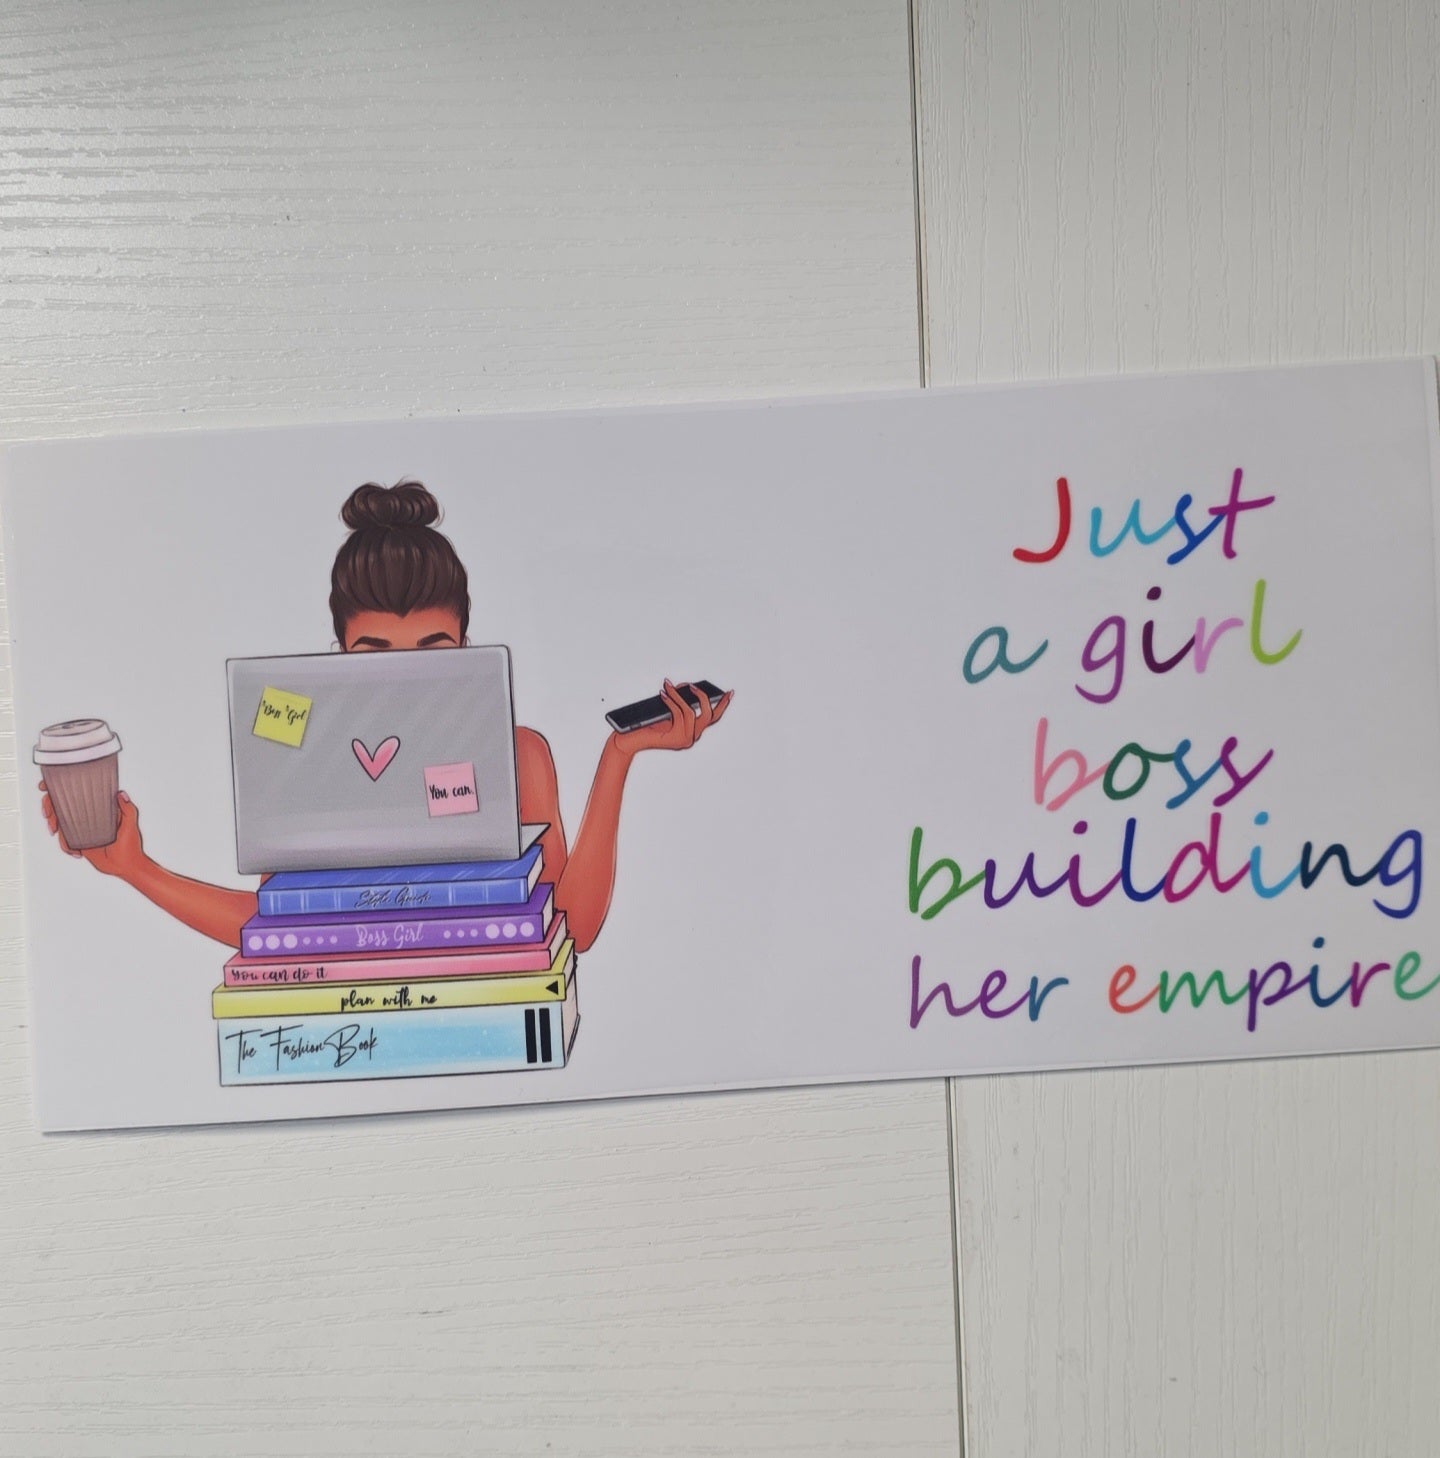 Boss Girl
You can.
Boss Girl
You can do it
plan with me
The Fashion Book
Just
a girl
boss
building
her empire